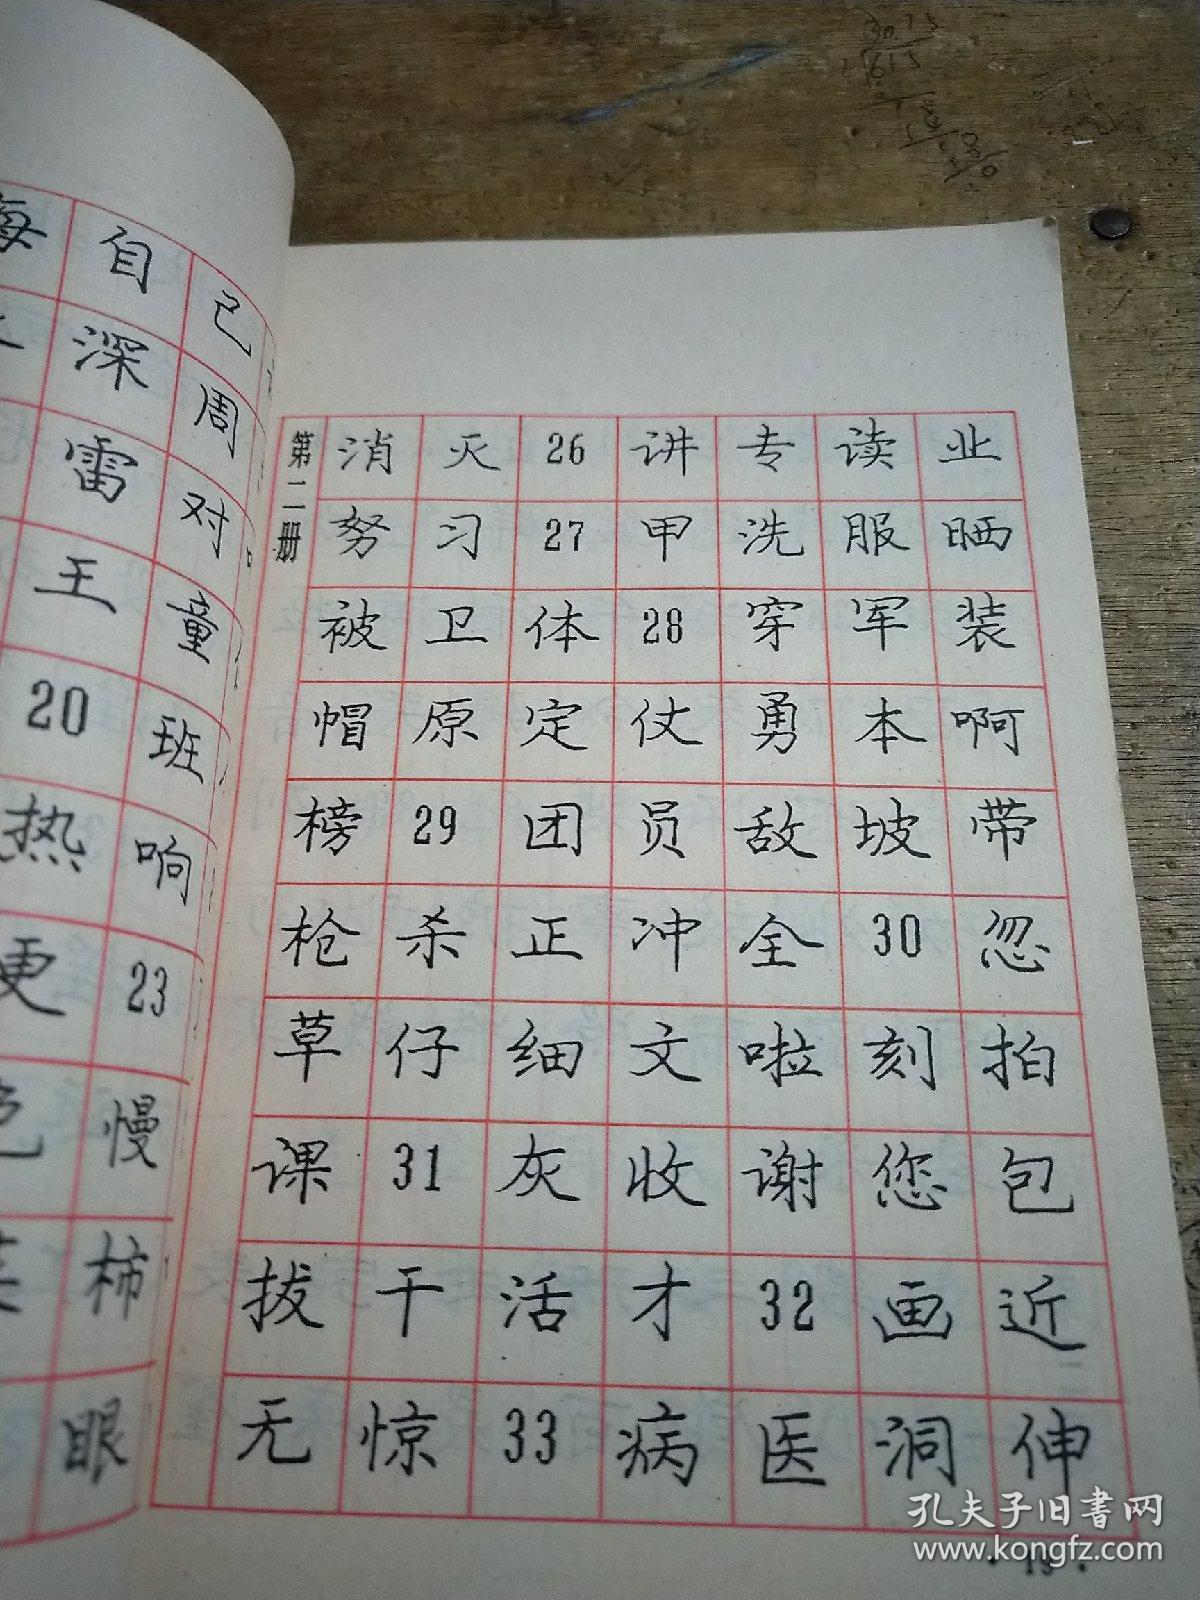 自己
深周
雷对
王童
20班
热响
更23
色慢
柿
眼
第二册
消灭26讲专读业
努习27甲洗服晒
被卫体28穿军装
帽原定仗勇本啊
榜29团员敌坡带
枪杀正冲全30忽
草仔细文啦刻拍
课31灰收谢您包
拔干活才32画近
无惊33病医洞伸
孔夫子旧书网
www.kongfz.com